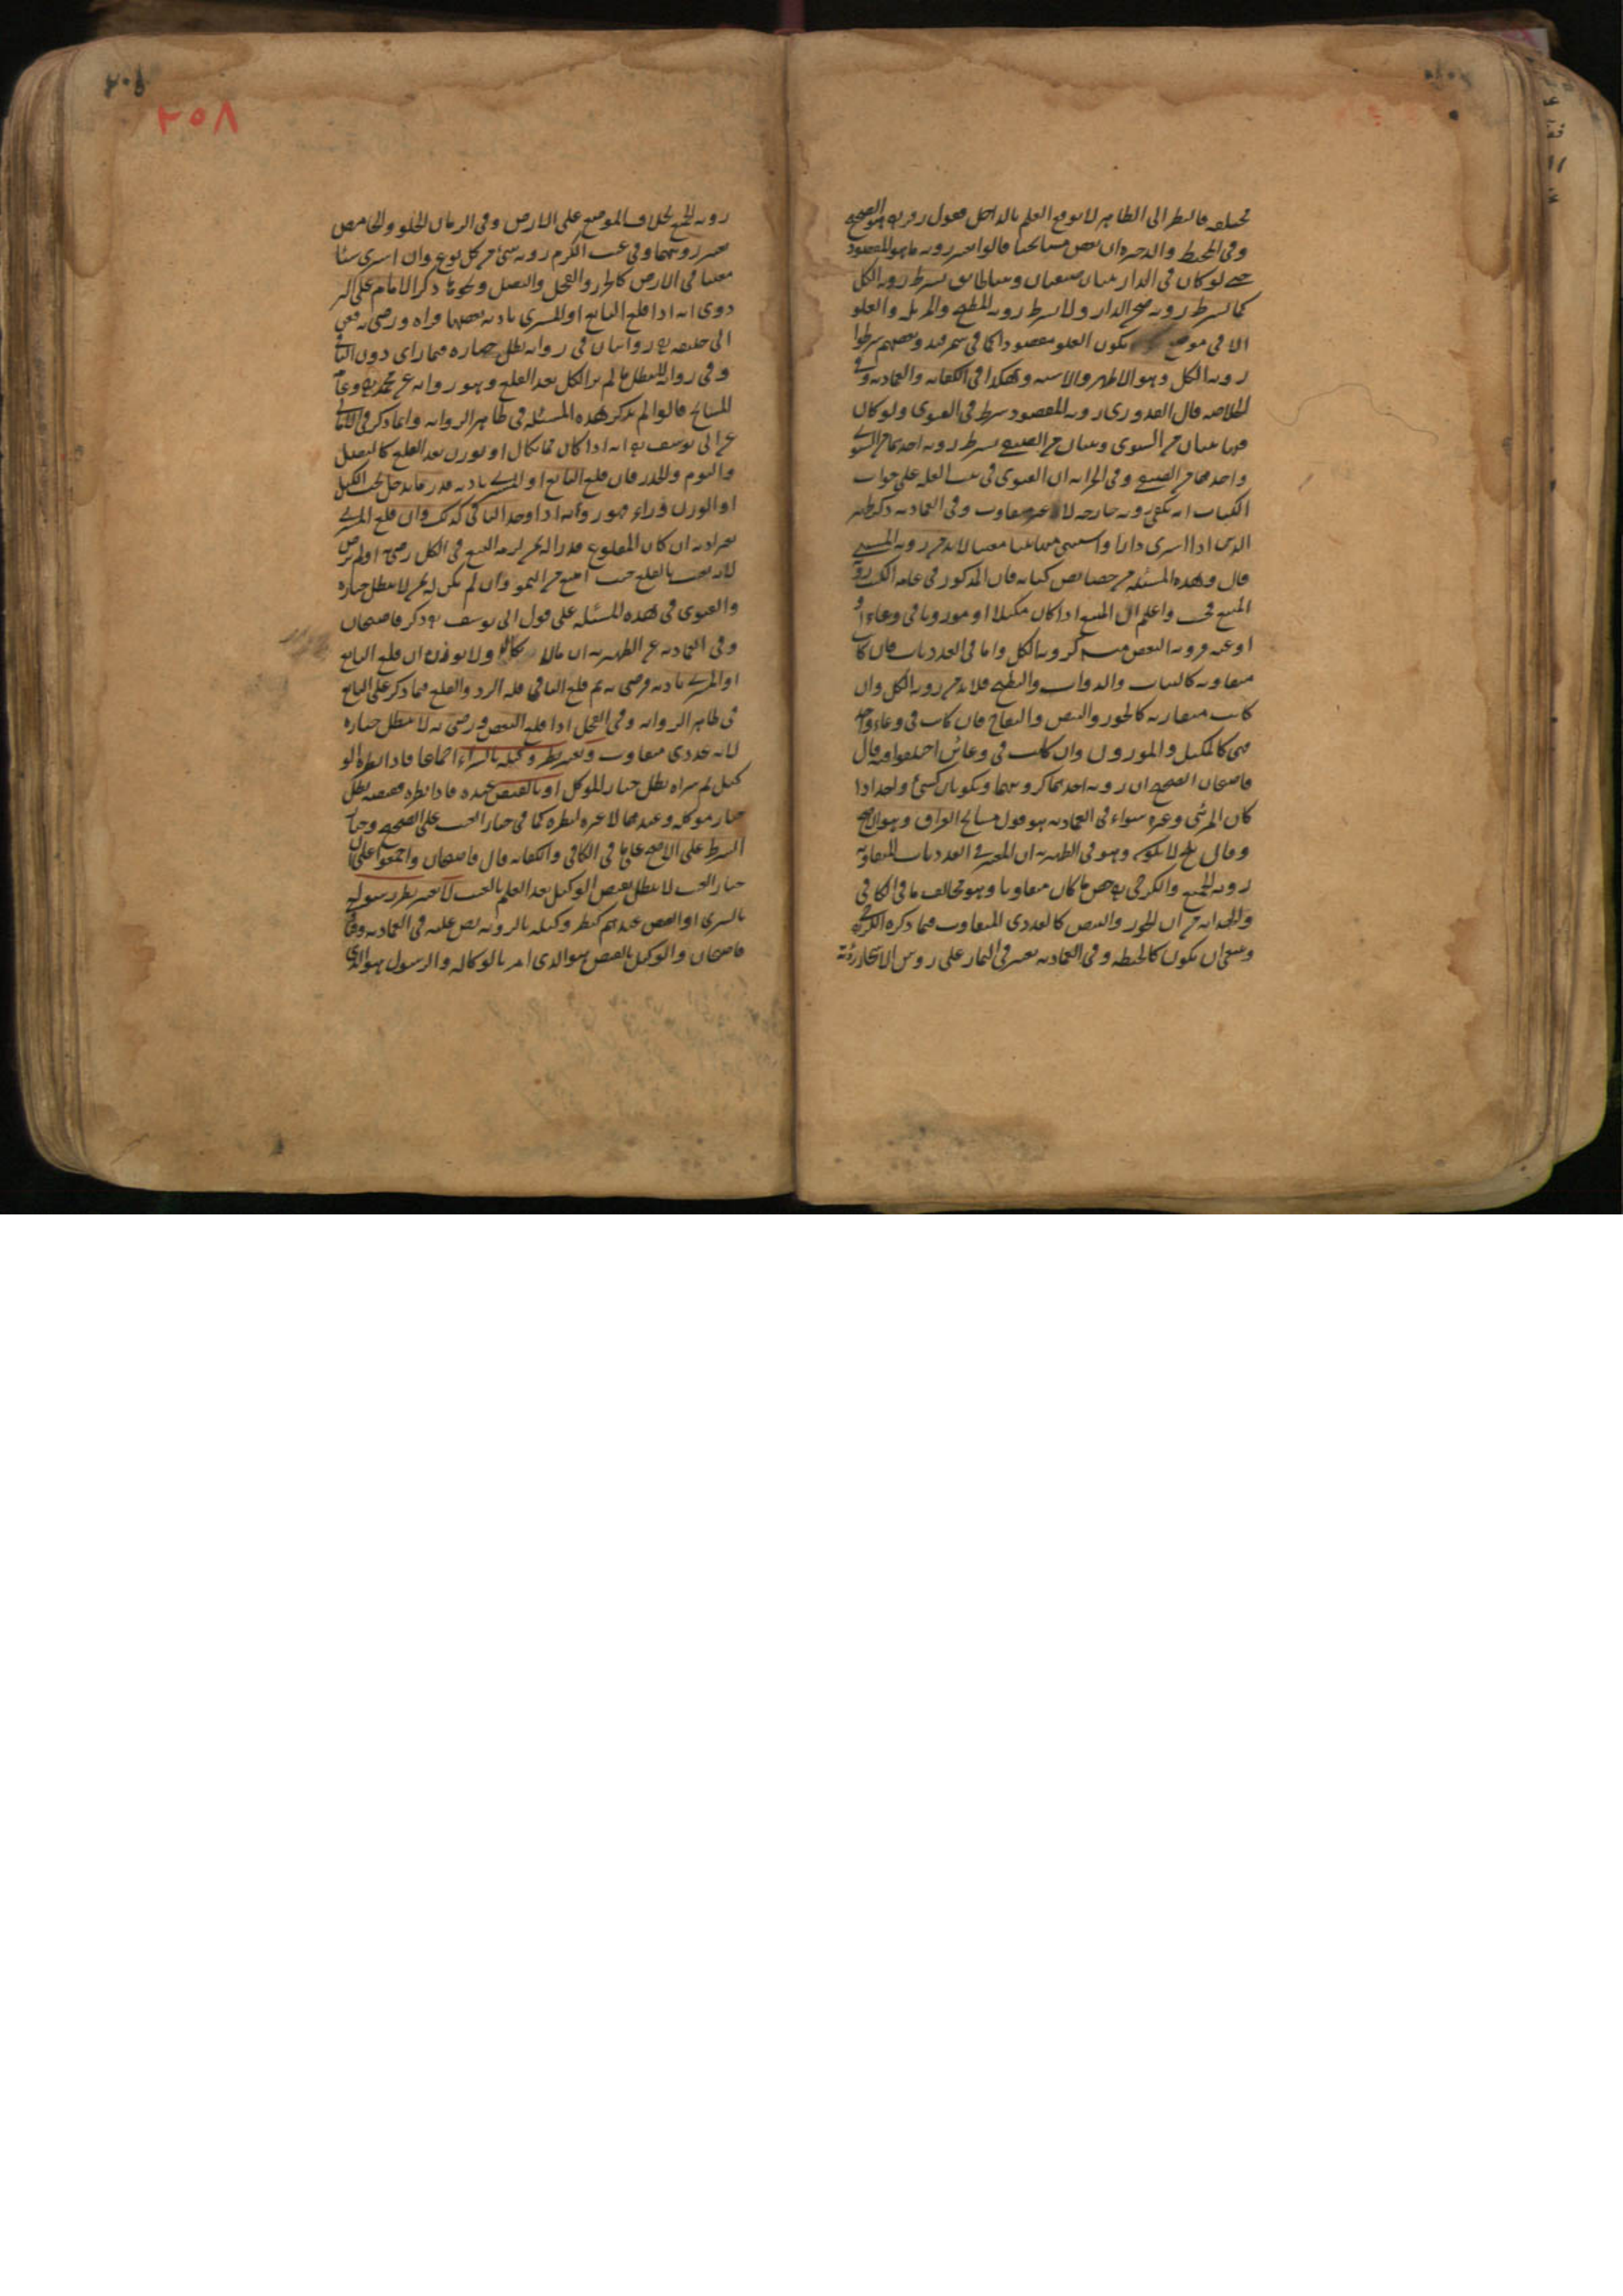 مختلفة فالنظر الى الظاهر لا يوقع العلم بالداخل فقول زفر هو الصحيح
وفى المحيط والذخيرة ان بعض مشايخنا قالوا تعتبر رؤية ما هو المقصود
حتى لو كان فى الدار بيتان صيفيان وبيتا طابق يشترط رؤية الكل
كما يشترط رؤية صحن الدار ولا يشترط رؤية المطبخ والمزبلة والعلو
الا فى موضع يكون العلو مقصودا كما فى سمرقند وبعضهم شرطوا
رؤية الكل وهو الاظهر والاشبه وهكذا فى الكفاية والعمادية وفى
الخلاصة قال القدورى رؤية المقصود شرط فى الفتوى ولو كان
فيها بيتان من الشتوى وبيتان من الصيفى يشترط رؤية احدهما من الشتوى
واحدهما من الصيفى وفى الخزانة ان الفتوى فى بيت الغلة على جواب
الكتاب انه يكفى رؤية خارجه لانه غير متفاوت وفى العمادية ذكر ظهير
الدين اذا اشترى دارا واستثنى منها بيتا معينا لا بد من رؤية المستثنى
قال وهذه المسئلة من خصايص كتابه فان المذكور فى عامة الكتب رؤية
المبيع فحسب واعلم ان المبيع اذا كان مكيلا او موزونا فى وعاء او
اوعية فرؤية البعض منه كرؤية الكل واما فى العدديات فان كان
متفاوتة كالثياب والدواب والبطيخ فلا بد من رؤية الكل وان
كانت متقاربة كالجوز والبيض والتفاح فان كان فى وعاء واحد
فهى كالمكيل والموزون وان كانت فى وعائين اختلفوا فيه قال
قاضيخان الصحيح ان رؤية احدهما كرؤيتهما ويكونان كشئ واحد اذا
كان المرئى وغيره سواء فى العمادية هو قول مشايخ العراق وهو الاصح
وقال بلخ لا يكون وهو فى الظهيرية ان المعتبر فى العدديات المتفاوتة
رؤية الجميع والكرخى خص ما كان متفاوتا وهو مخالف ما فى الكافى
والهداية من ان الجوز والبيض كالعددى المتفاوت فيما ذكره الكرخى
وينبغى ان يكون كالحنطة وفى العمادية تعتبر فى الثمار على رؤس الاشجار رؤية
رؤية الجميع بخلاف الموضع على الارض وفى الرمان الحلو والحامض
تعتبر رؤيتهما وفى عنب الكرم رؤية شئ من كل نوع وان اشترى شيئا
مغيبا فى الارض كالجزر والفجل والبصل ونحوها ذكر الامام على البز
دوى انه اذا قلع البايع او المشترى باذنه بعضها فراه ورضى به فعن
ابى حنيفة رح روايتان فى رواية بطل خياره فيما راى دون الباقى
وفى رواية لا يبطل ما لم ير الكل بعد القلع وهو رواية عن محمد رح وعامة
المشايخ قالوا لم يذكر هذه المسئلة فى ظاهر الرواية وانما ذكر فى الامالى
عن ابى يوسف رح انه اذا كان مما يكال او يوزن بعد القلع كالبصل
والثوم والجزر فان قلع البايع او المشترى باذنه قدر ما يدخل تحت الكيل
او الوزن فراه فهو رؤية اذا وجد الباقى كذلك وان قلع المشترى
بغير اذنه ان كان المقلوع قدرا له ثمن لزمه البيع فى الكل رضى او لم يرض
لانه تعيب بالقلع حيث امتنع من النمو وان لم يكن له ثمن لا يبطل خياره
والفتوى فى هذه المسئلة على قول ابى يوسف رح ذكر قاضيخان
وفى العمادية عن الظهيرية ان ما لا يكال ولا يوزن ان قلع البايع
او المشترى باذنه ورضى به ثم قلع الباقى فله الرد والقلع فيما ذكر على البايع
فى ظاهر الرواية وفى الفجل اذا قلع البعض ورضى به لا يبطل خياره
لانه عددى متفاوت وتعتبر نظر وكيله بالشراء اجماعا فاذا نظره الو
كيل ثم شراه بطل خيار الموكل او بالقبض عنده فاذا نظره فقبضه بطل
خيار موكله وعندهما لا عبرة لنظره كما فى خيار العيب على الصحيح وخيار
الشرط على الاصح على ما فى الكافى والكفاية قال قاضيخان واجمعوا على ان
خيار العيب لا يبطل بقبض الوكيل بعد العلم بالعيب لا تعتبر نظر رسوله
بالشرى او القبض عندهم كنظر وكيله بالرؤية نص عليه فى العمادية وقال
قاضيخان والوكيل بالقبض هو الذى امر بالوكالة والرسول هو الذى
٢٠٨
٢٥٨